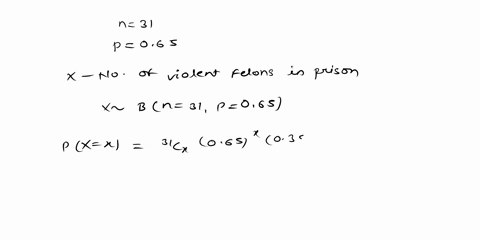 n = 31
p = 0.65
X – No. of violent felons in prison
X ~ B ( n = 31, p = 0.65 )
P ( X = x ) = ³¹Cₓ (0.65)ˣ (0.3